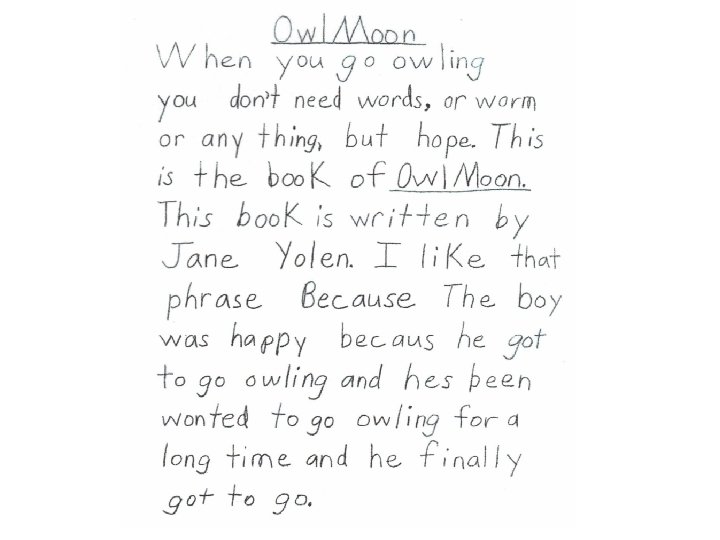 Owl Moon
When you go owling
you don't need words, or worm
or any thing, but hope. This
is the book of Owl Moon.
This book is written by
Jane Yolen. I like that
phrase Because The boy
was happy becaus he got
to go owling and hes been
wonted to go owling for a
long time and he finally
got to go.